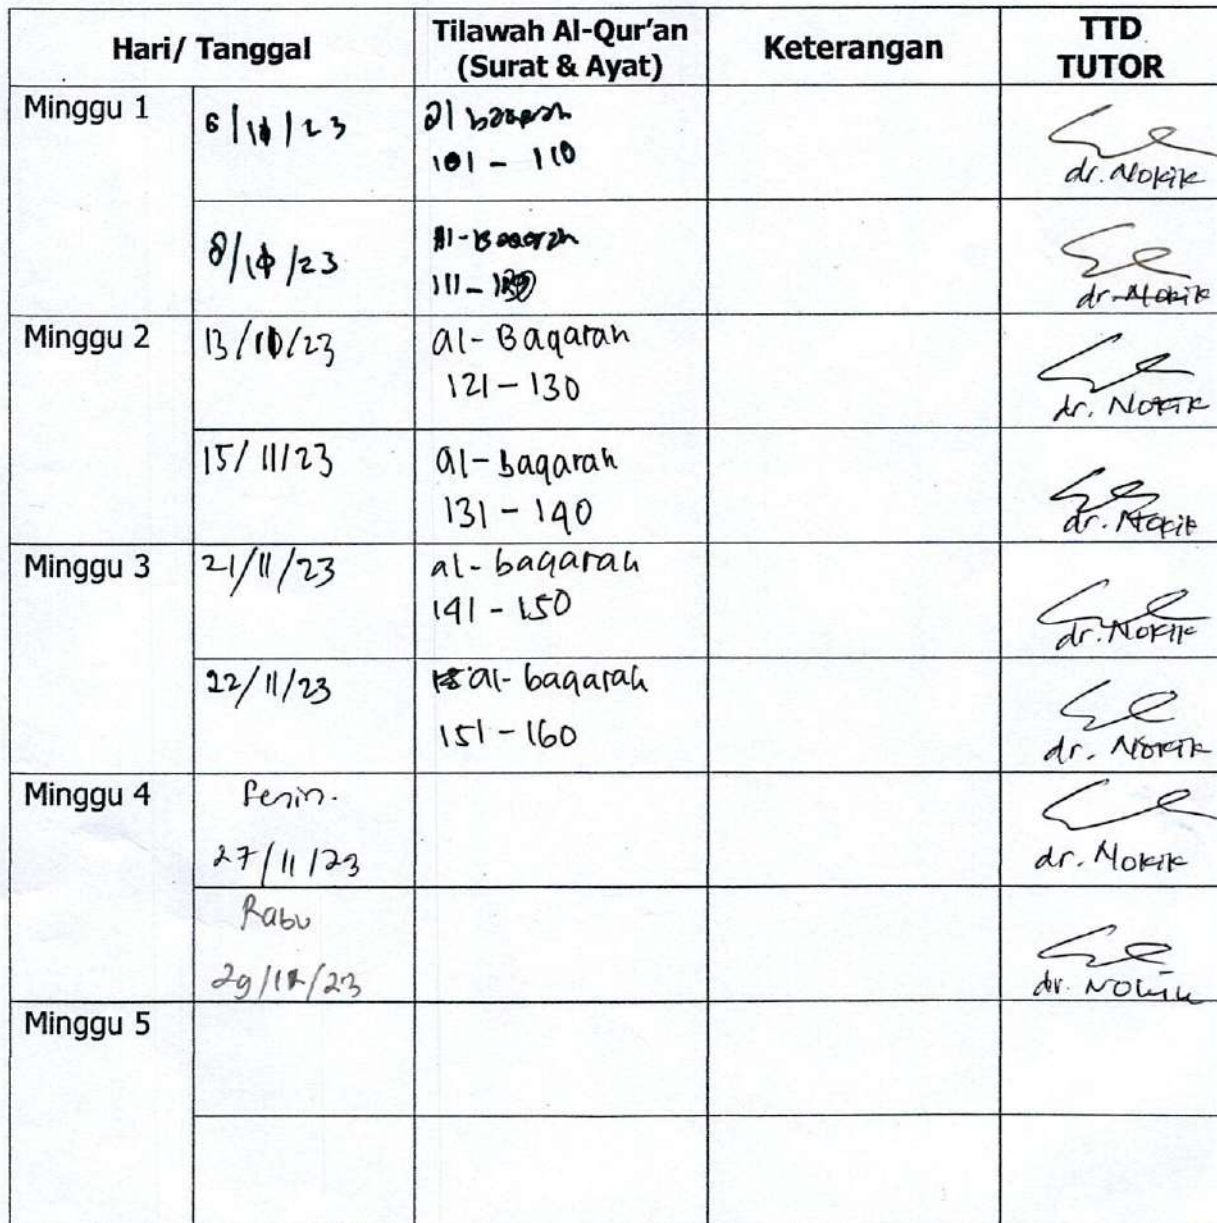 Hari/ Tanggal
Tilawah Al-Qur'an
(Surat & Ayat)
Keterangan
TTD
TUTOR
Minggu 1
6/11/23
al baqarah
101 - 110
dr. Nokik
8/11/23
Al-Baqarah
111 -
dr. Nokik
Minggu 2
13/11/23
al- Baqarah
121 - 130
dr. Nokik
15/11/23
al-baqarah
131 - 140
dr. Nokik
Minggu 3
21/11/23
al-baqarah
141 - 150
dr. Nokik
22/11/23
al-baqarah
151 - 160
dr. Nokik
Minggu 4
Senin.
27/11/23
dr. Nokik
Rabu
29/11/23
dr. Nokik
Minggu 5